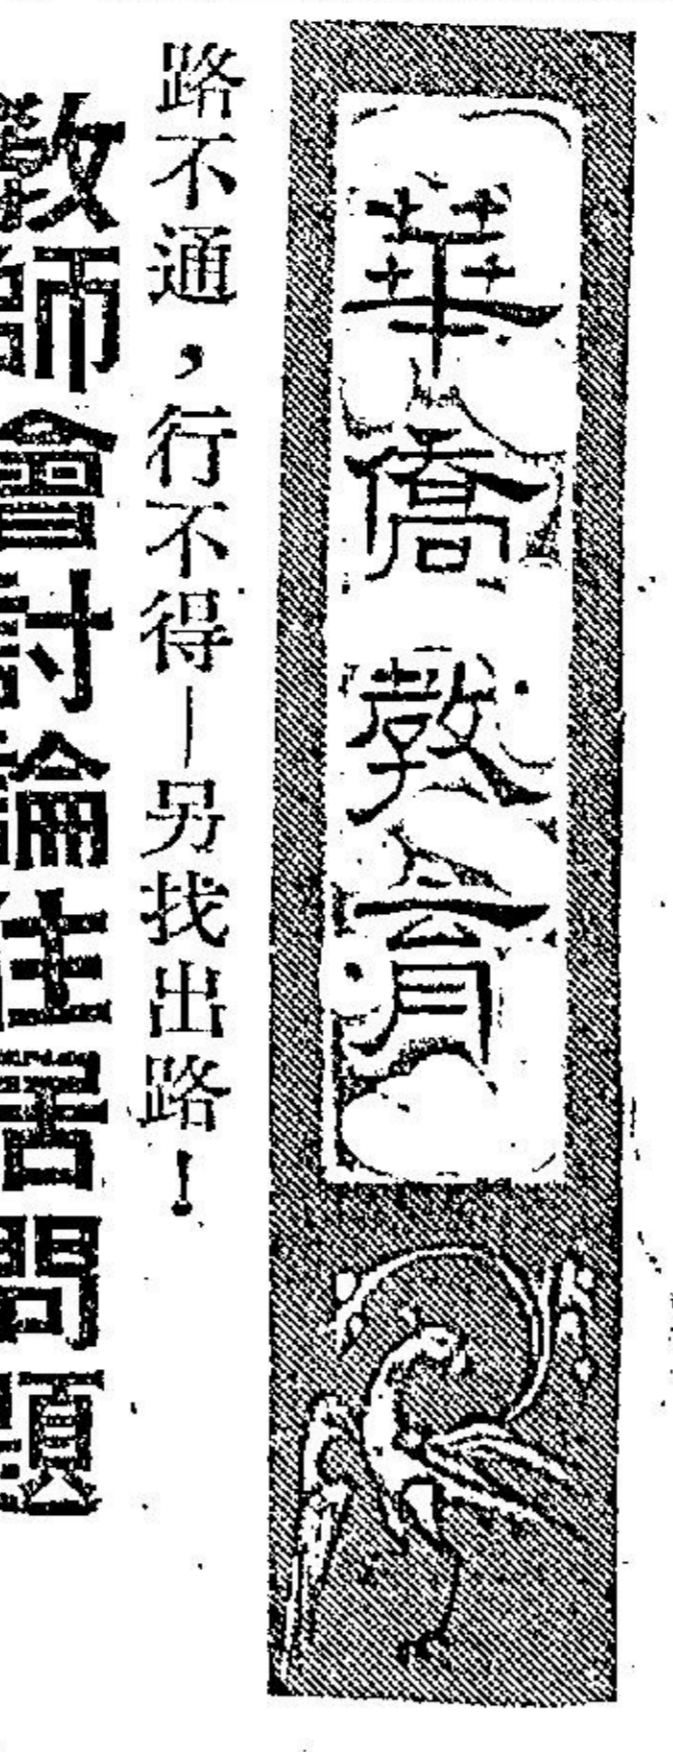 華僑教育
路不通，行不得—另找出路！
教師會討論住居問題